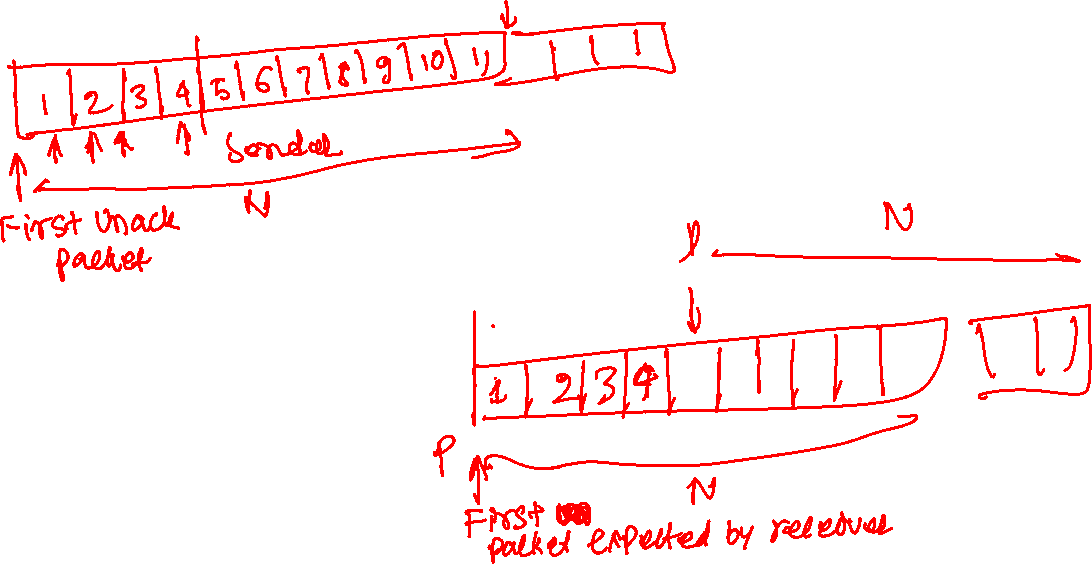 1 2 3 4 5 6 7 8 9 10 11
Sender
N
First Unack
packet
N
P
1 2 3 4
P
N
First
packet expected by receiver